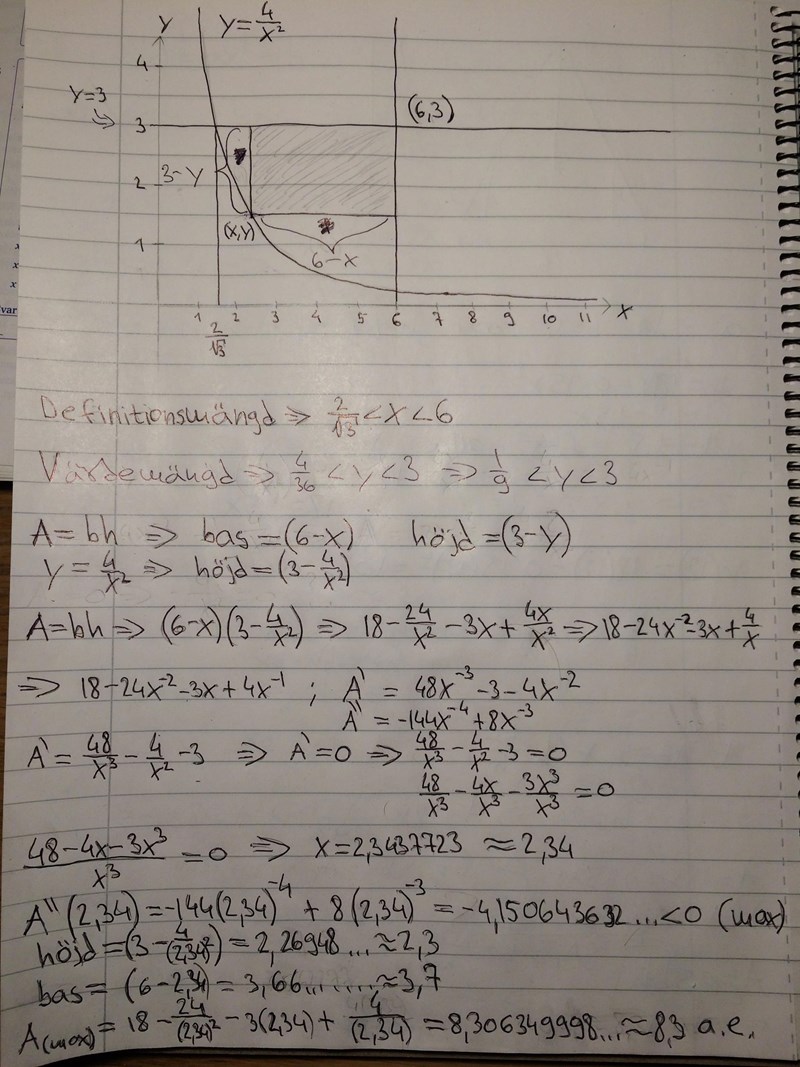 Y
y = 4/x²
4
y=3
(6,3)
3
3-y
2
(x,y)
1
6-x
1 2 3 4 5 6 7 8 9 10 11 x
2/√3
Definitionsmängd ⇒ 2/√3 < x < 6
Värdemängd ⇒ 4/36 < y < 3 ⇒ 1/9 < y < 3
A = bh ⇒ bas = (6-x) höjd = (3-y)
y = 4/x² ⇒ höjd = (3-4/x²)
A = bh ⇒ (6-x)(3-4/x²) ⇒ 18-24/x²-3x+4x/x² ⇒ 18-24x⁻²-3x+4/x
⇒ 18-24x⁻²-3x+4x⁻¹ ; A' = 48x⁻³-3-4x⁻²
A'' = -144x⁻⁴+8x⁻³
A' = 48/x³ - 4/x² - 3 ⇒ A' = 0 ⇒ 48/x³ - 4/x² - 3 = 0
48/x³ - 4x/x³ - 3x³/x³ = 0
(48-4x-3x³)/x³ = 0 ⇒ x = 2,3437723 ≈ 2,34
A''(2,34) = -144(2,34)⁻⁴ + 8(2,34)⁻³ = -4,150643632... < 0 (max)
höjd = (3 - 4/(2,34)²) = 2,26948... ≈ 2,3
bas = (6-2,34) = 3,66....... ≈ 3,7
A(max) = 18 - 24/(2,34)² - 3(2,34) + 4/(2,34) = 8,306349998... ≈ 8,3 a.e.
var